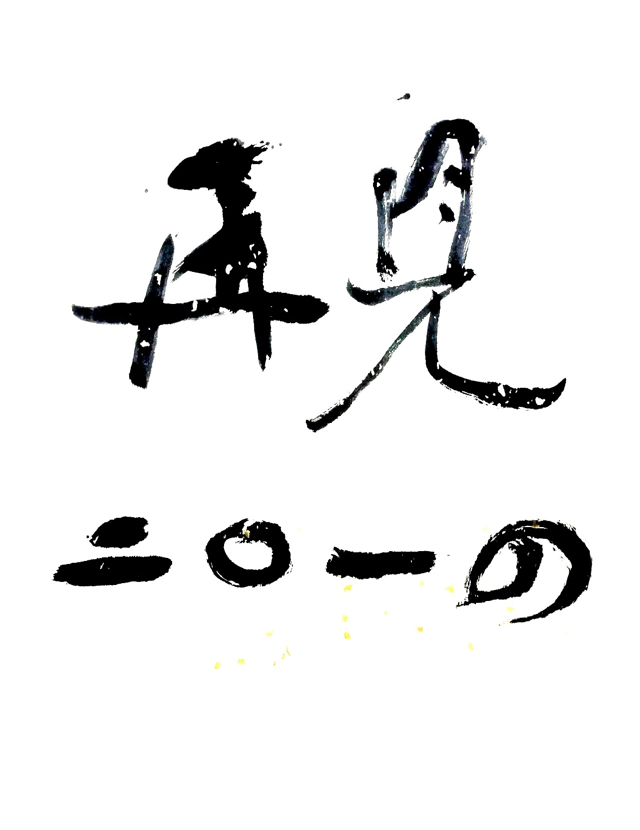 再見
二〇一の